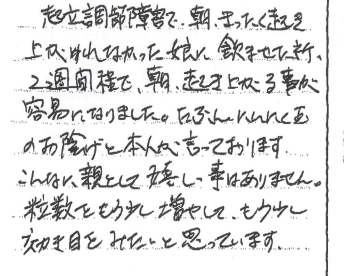 起立調節障害で、朝、まったく起き
上がれなかった娘に飲ませた所、
2週間程で、朝、起き上がる事が
容易になりました。たぶんにんにく玉
のお陰げと本人が言っております。
こんなに、親として嬉しい事はありません。
粒数をもう少し増やして、もう少し
効き目をみたいと思っています。